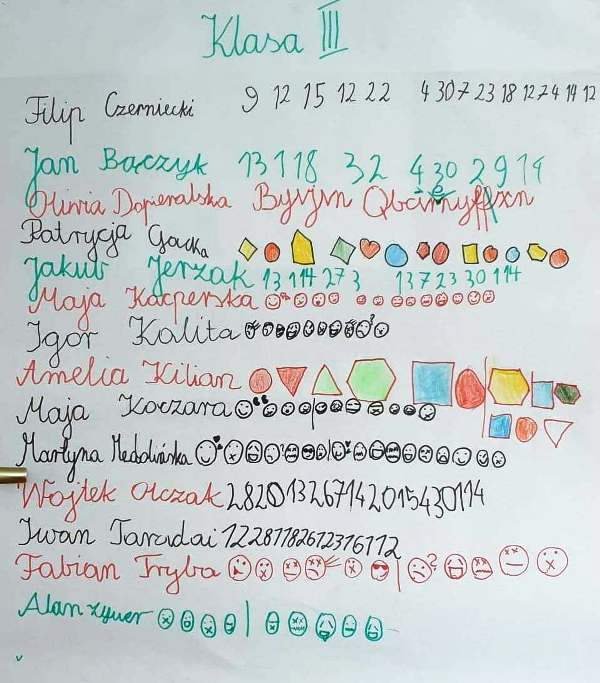 Klasa III
Filip Czerniecki 9 12 15 12 22 4 30 7 23 18 12 7 4 14 12
Jan Bączyk 13 1 18 3 2 4 30 2 9 14
Oliwia Dopieralska
Patrycja Gacka
Jakub Jerzak 13 1 14 27 3 13 7 23 30 1 14
Maja Kacperska
Igor Kalita
Amelia Kilian
Maja Koczara
Martyna
Wojtek Olczak 282013267142015430114
Iwan Taradai 1228118261231611 2
Fabian Tryba
Alan